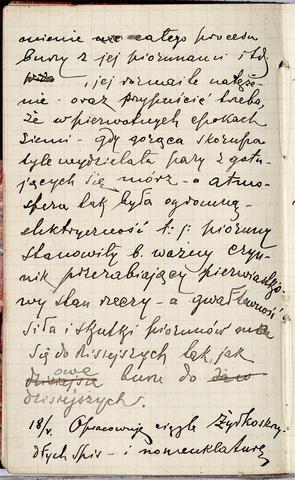 mienie całego procesu
burzy z jej piorunami i t.d.
, jej rozmaite natęże-
nie - oraz przypuścić trzeba,
że w pierwotnych epokach
ziemi - gdy gorąca skorupa
tyle wydzielała pary z gotu-
jących się mórz - a atmo-
sfera tak była ogromną -
elektryczność t: j: pioruny
stanowiły b. ważny czyn-
nik przerabiający pierwiastko-
wy stan rzeczy - a gwałtowność
siła i skutki piorunów ma
się do dzisiejszych tak, jak
owe
dzisiejsze burze do
dzisiejszych.
18/V. Opracowuję ciągle
dłych Spis - i nomenklaturę